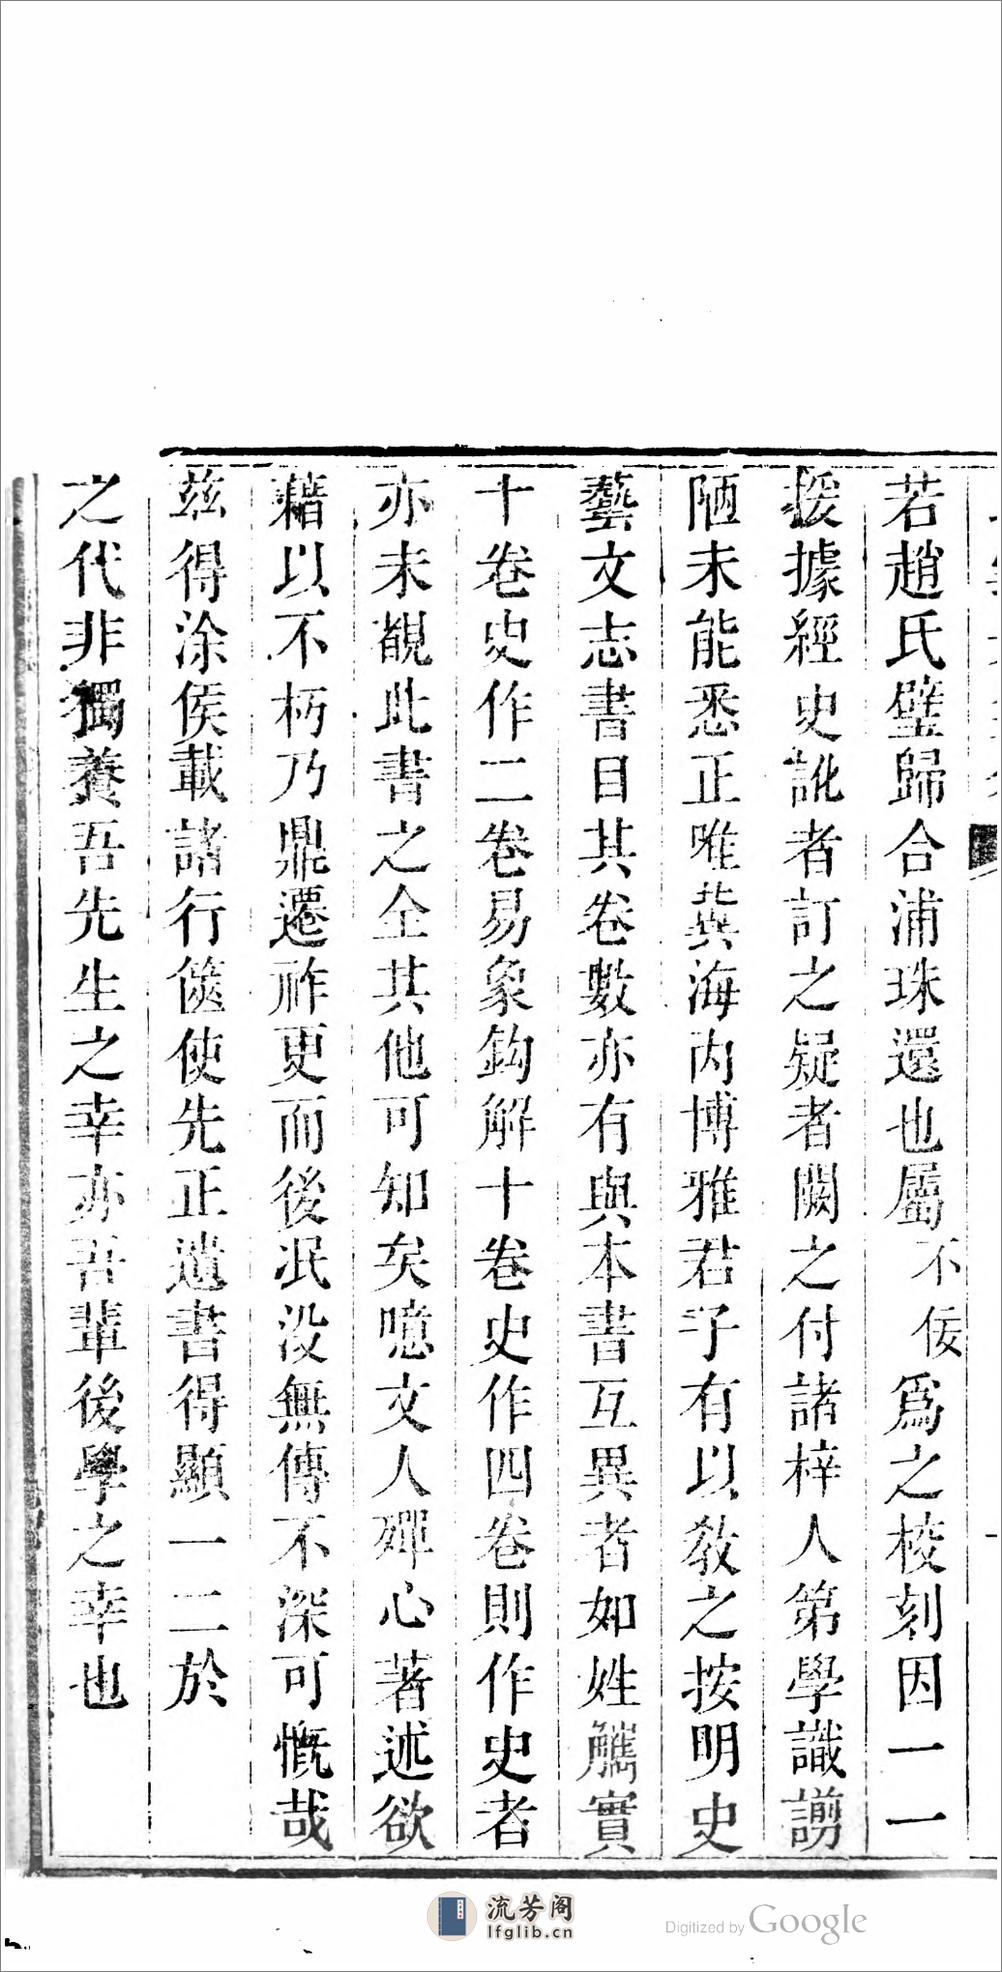 若趙氏璧歸合浦珠還也屬不佞爲之校刻因一一
援據經史訛者訂之疑者闕之付諸梓人第學識謭
陋未能悉正唯冀海内博雅君子有以敎之按明史
藝文志書目其卷數亦有與本書互異者如姓觿實
十卷史作二卷易象鈎解十卷史作四卷則作史者
亦未覩此書之全其他可知矣噫文人殫心著述欲
藉以不朽乃鼎遷祚更而後泯没無傳不深可慨哉
兹得涂侯載諸行篋使先正遺書得顯一二於
之代非獨養吾先生之幸亦吾輩後學之幸也
流芳阁
lfglib.cn
Digitized by Google